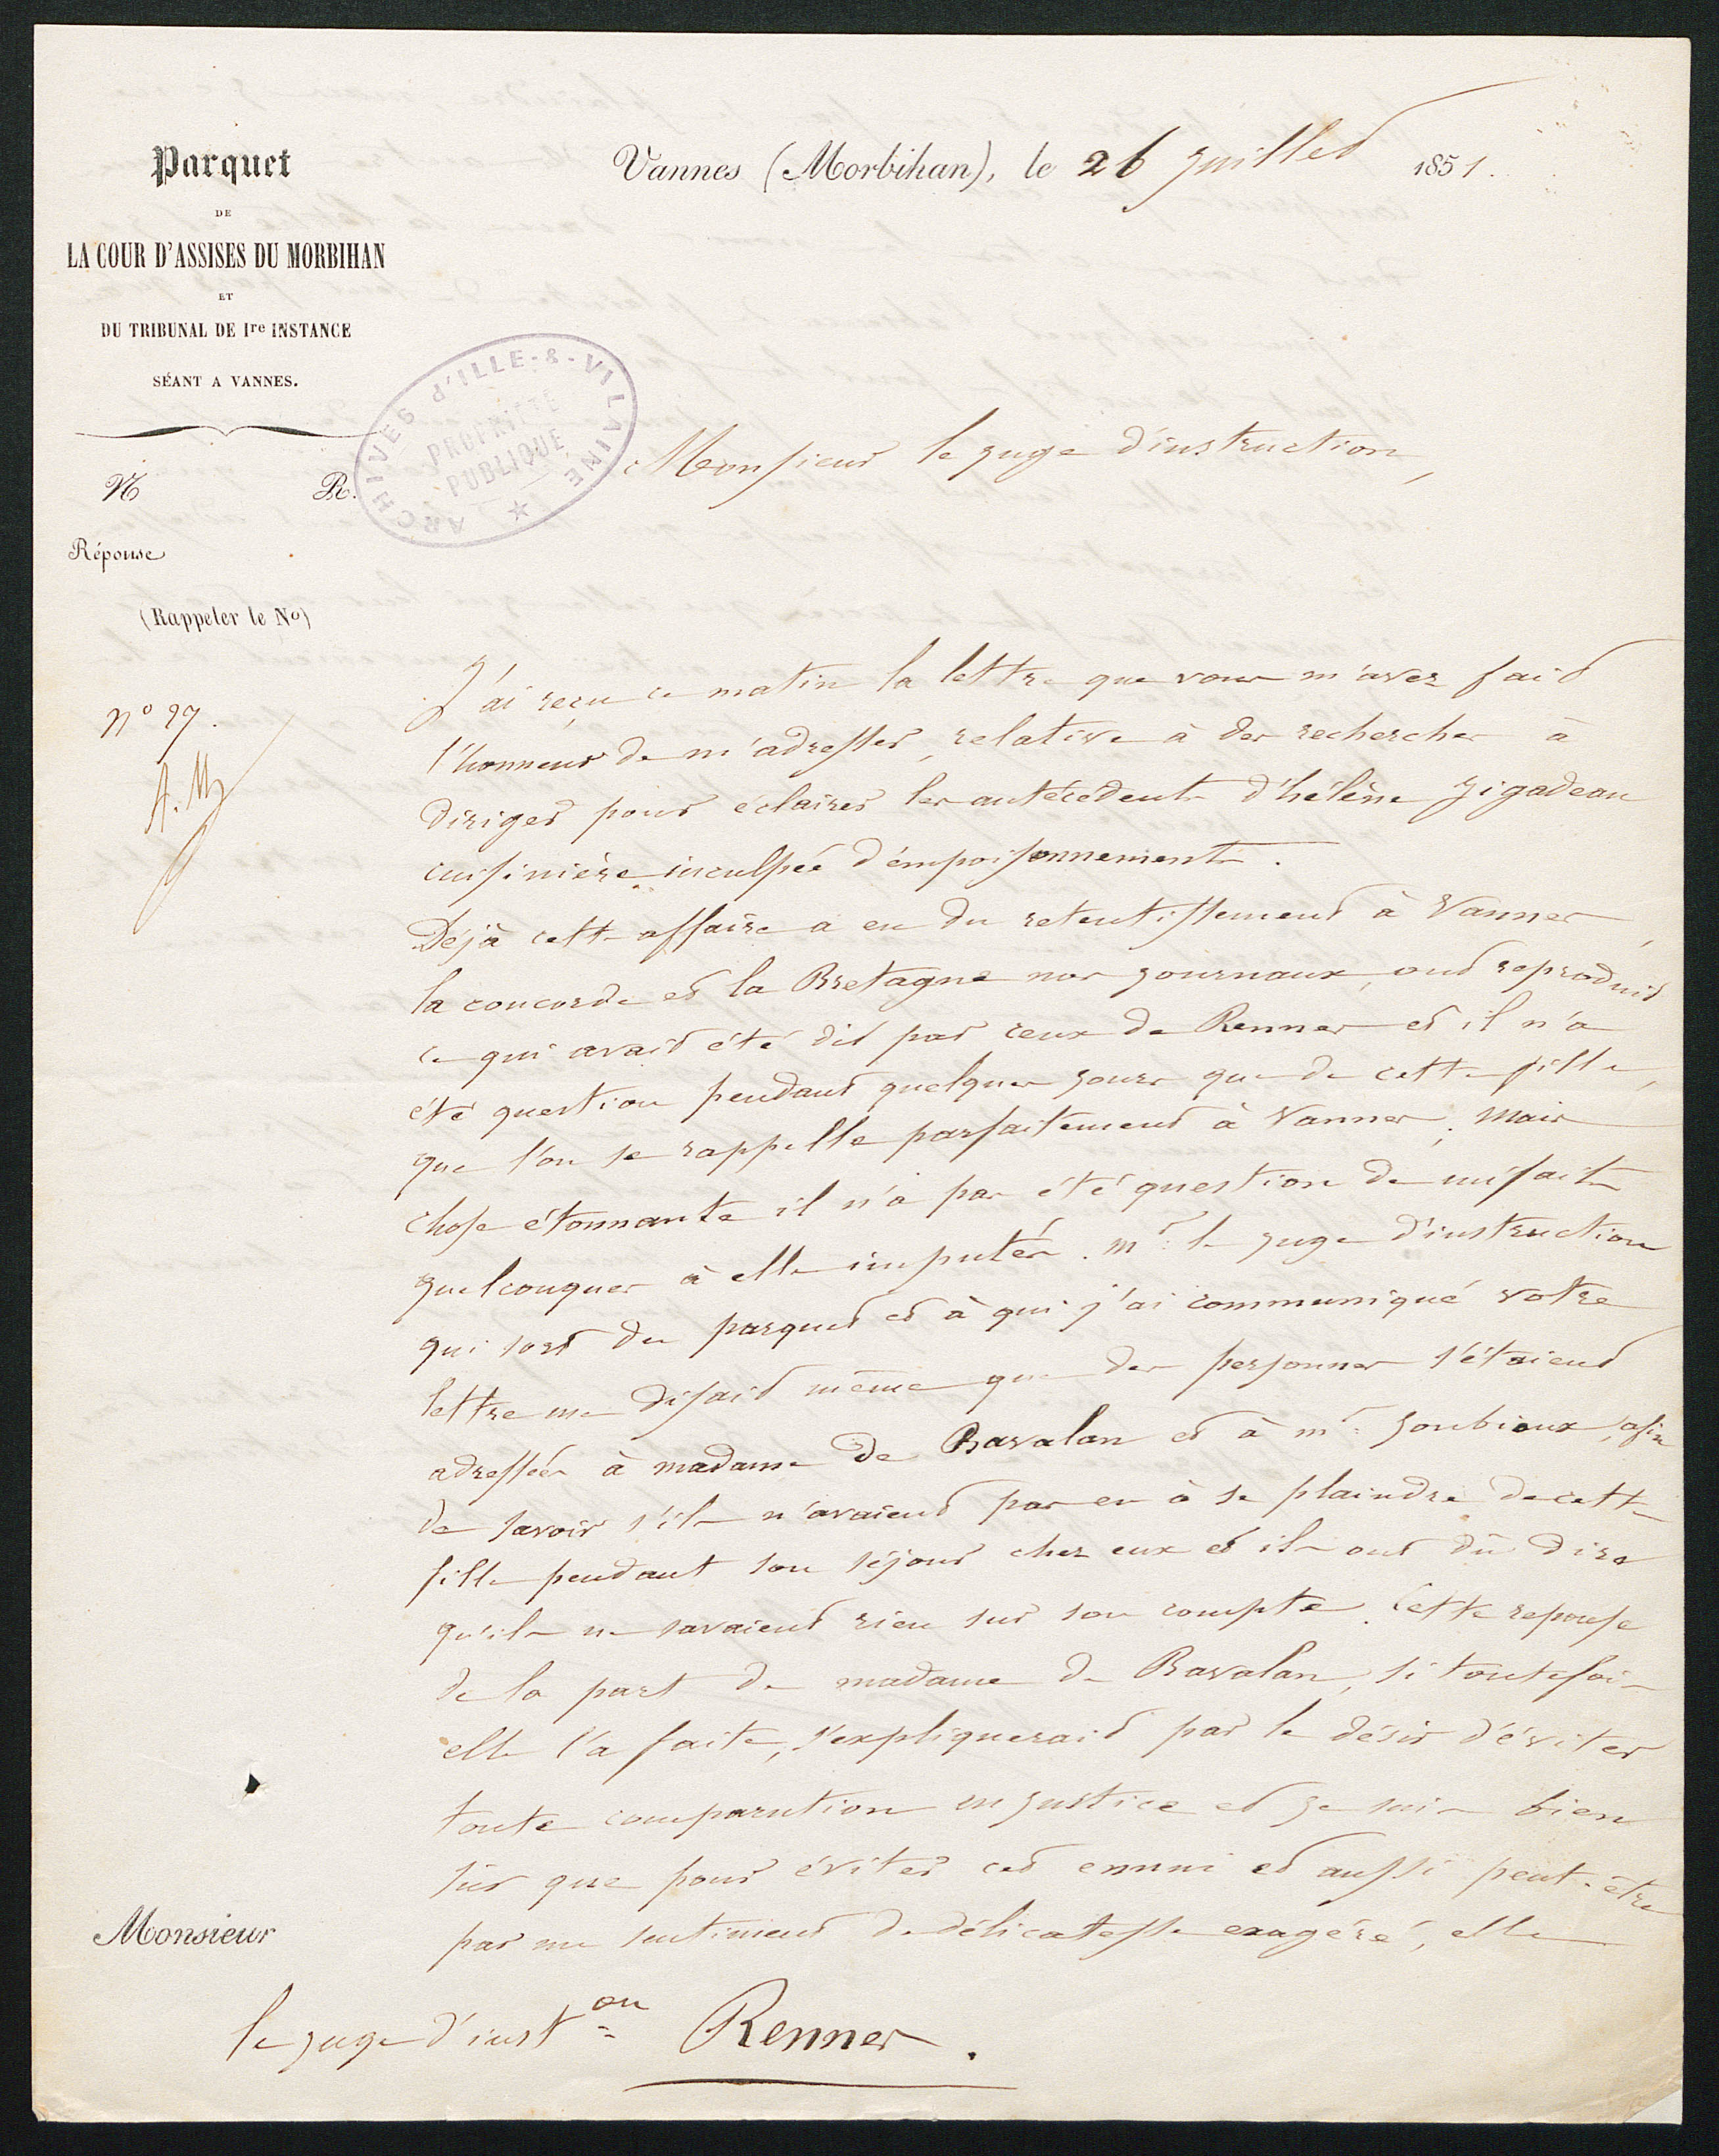 Parquet
DE
LA COUR D'ASSISES DU MORBIHAN
ET
DU TRIBUNAL DE Ire INSTANCE
SÉANT A VANNES.
N R.
Réponse
(Rappeler le No)
no 27.
A.M
Vannes (Morbihan), le 26 juillet 1851.
ARCHIVES d'ILLE-&-VILAINE
PROPRIÉTÉ
PUBLIQUE
Monsieur le juge d'instruction,
J'ai reçu ce matin la lettre que vous m'avez fait
l'honneur de m'adresser, relative à des recherches à
diriger pour éclairer les antécédents d'hélène Jigadeau
cuisinière inculpée d'émpoisonnements.
Déjà cette affaire a eu du retentissement à Vannes,
la concorde et la Bretagne nos journaux, ont reproduit
ce qui avait été dit par ceux de Rennes et il n'a
été question pendant quelques jours que de cette fille,
que l'on se rappelle parfaitement à Vannes; mais
chose étonnante il n'a pas été question de méfaits
quelconques à elle imputés. mr le juge d'instruction
qui sort du parquet et à qui j'ai communiqué votre
lettre me disait même que des personnes s'étaient
adressées à madame de Bavalan et à mr Joubioux, afin
de savoir s'ils n'avaient pas eu à se plaindre de cette
fille pendant son séjour chez eux et ils ont dû dire
qu'ils ne savaient rien sur son compte. Cette reponse
de la part de madame de Bavalan, si toutefois
elle l'a faite, s'expliquerait par le désir d'éviter
toute comparution en justice et je suis bien
sûr que pour éviter cet ennui et aussi peut-être
par un sentiment de délicatesse exagéré, elle
Monsieur
le juge d'inston Rennes.